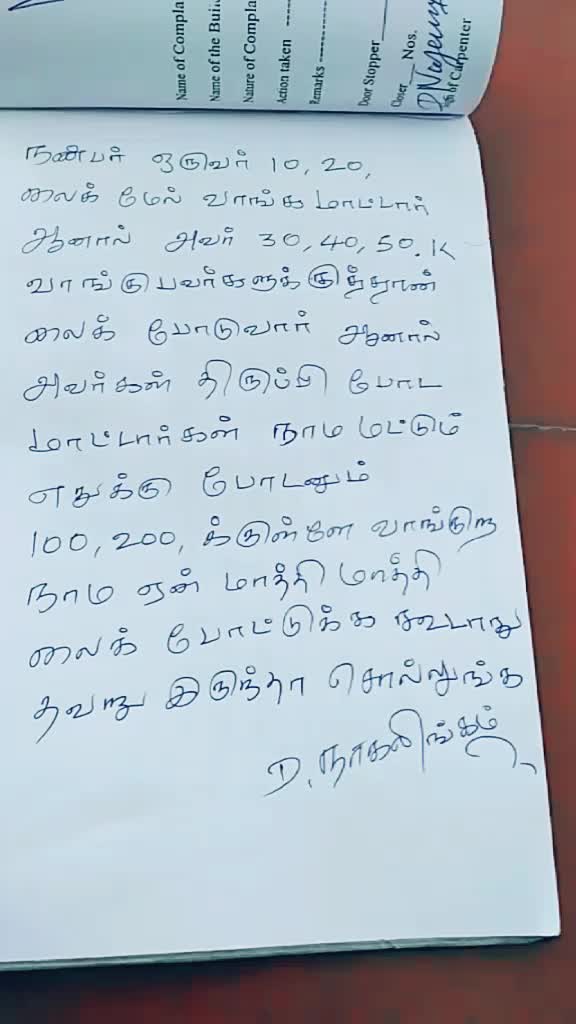 Name of Compla
Name of the Buil
Nature of Compla
Action taken
Remarks
Door Stopper
Closer Nos.
of Carpenter
நண்பர் ஒருவர் 10, 20,
லைக் மேல் வாங்க மாட்டார்
ஆனால் அவர் 30, 40, 50.K
வாங்குபவர்களுக்குத்தான்
லைக் போடுவார் ஆனால்
அவர்கள் திருப்பி போட
மாட்டார்கள் நாம மட்டும்
எதுக்கு போடனும்
100, 200, க்குள்ளே வாங்குற
நாம ஏன் மாத்தி மாத்தி
லைக் போட்டுக்க கூடாது
தவறு இருந்தா சொல்லுங்க
D. நாகலிங்கம்